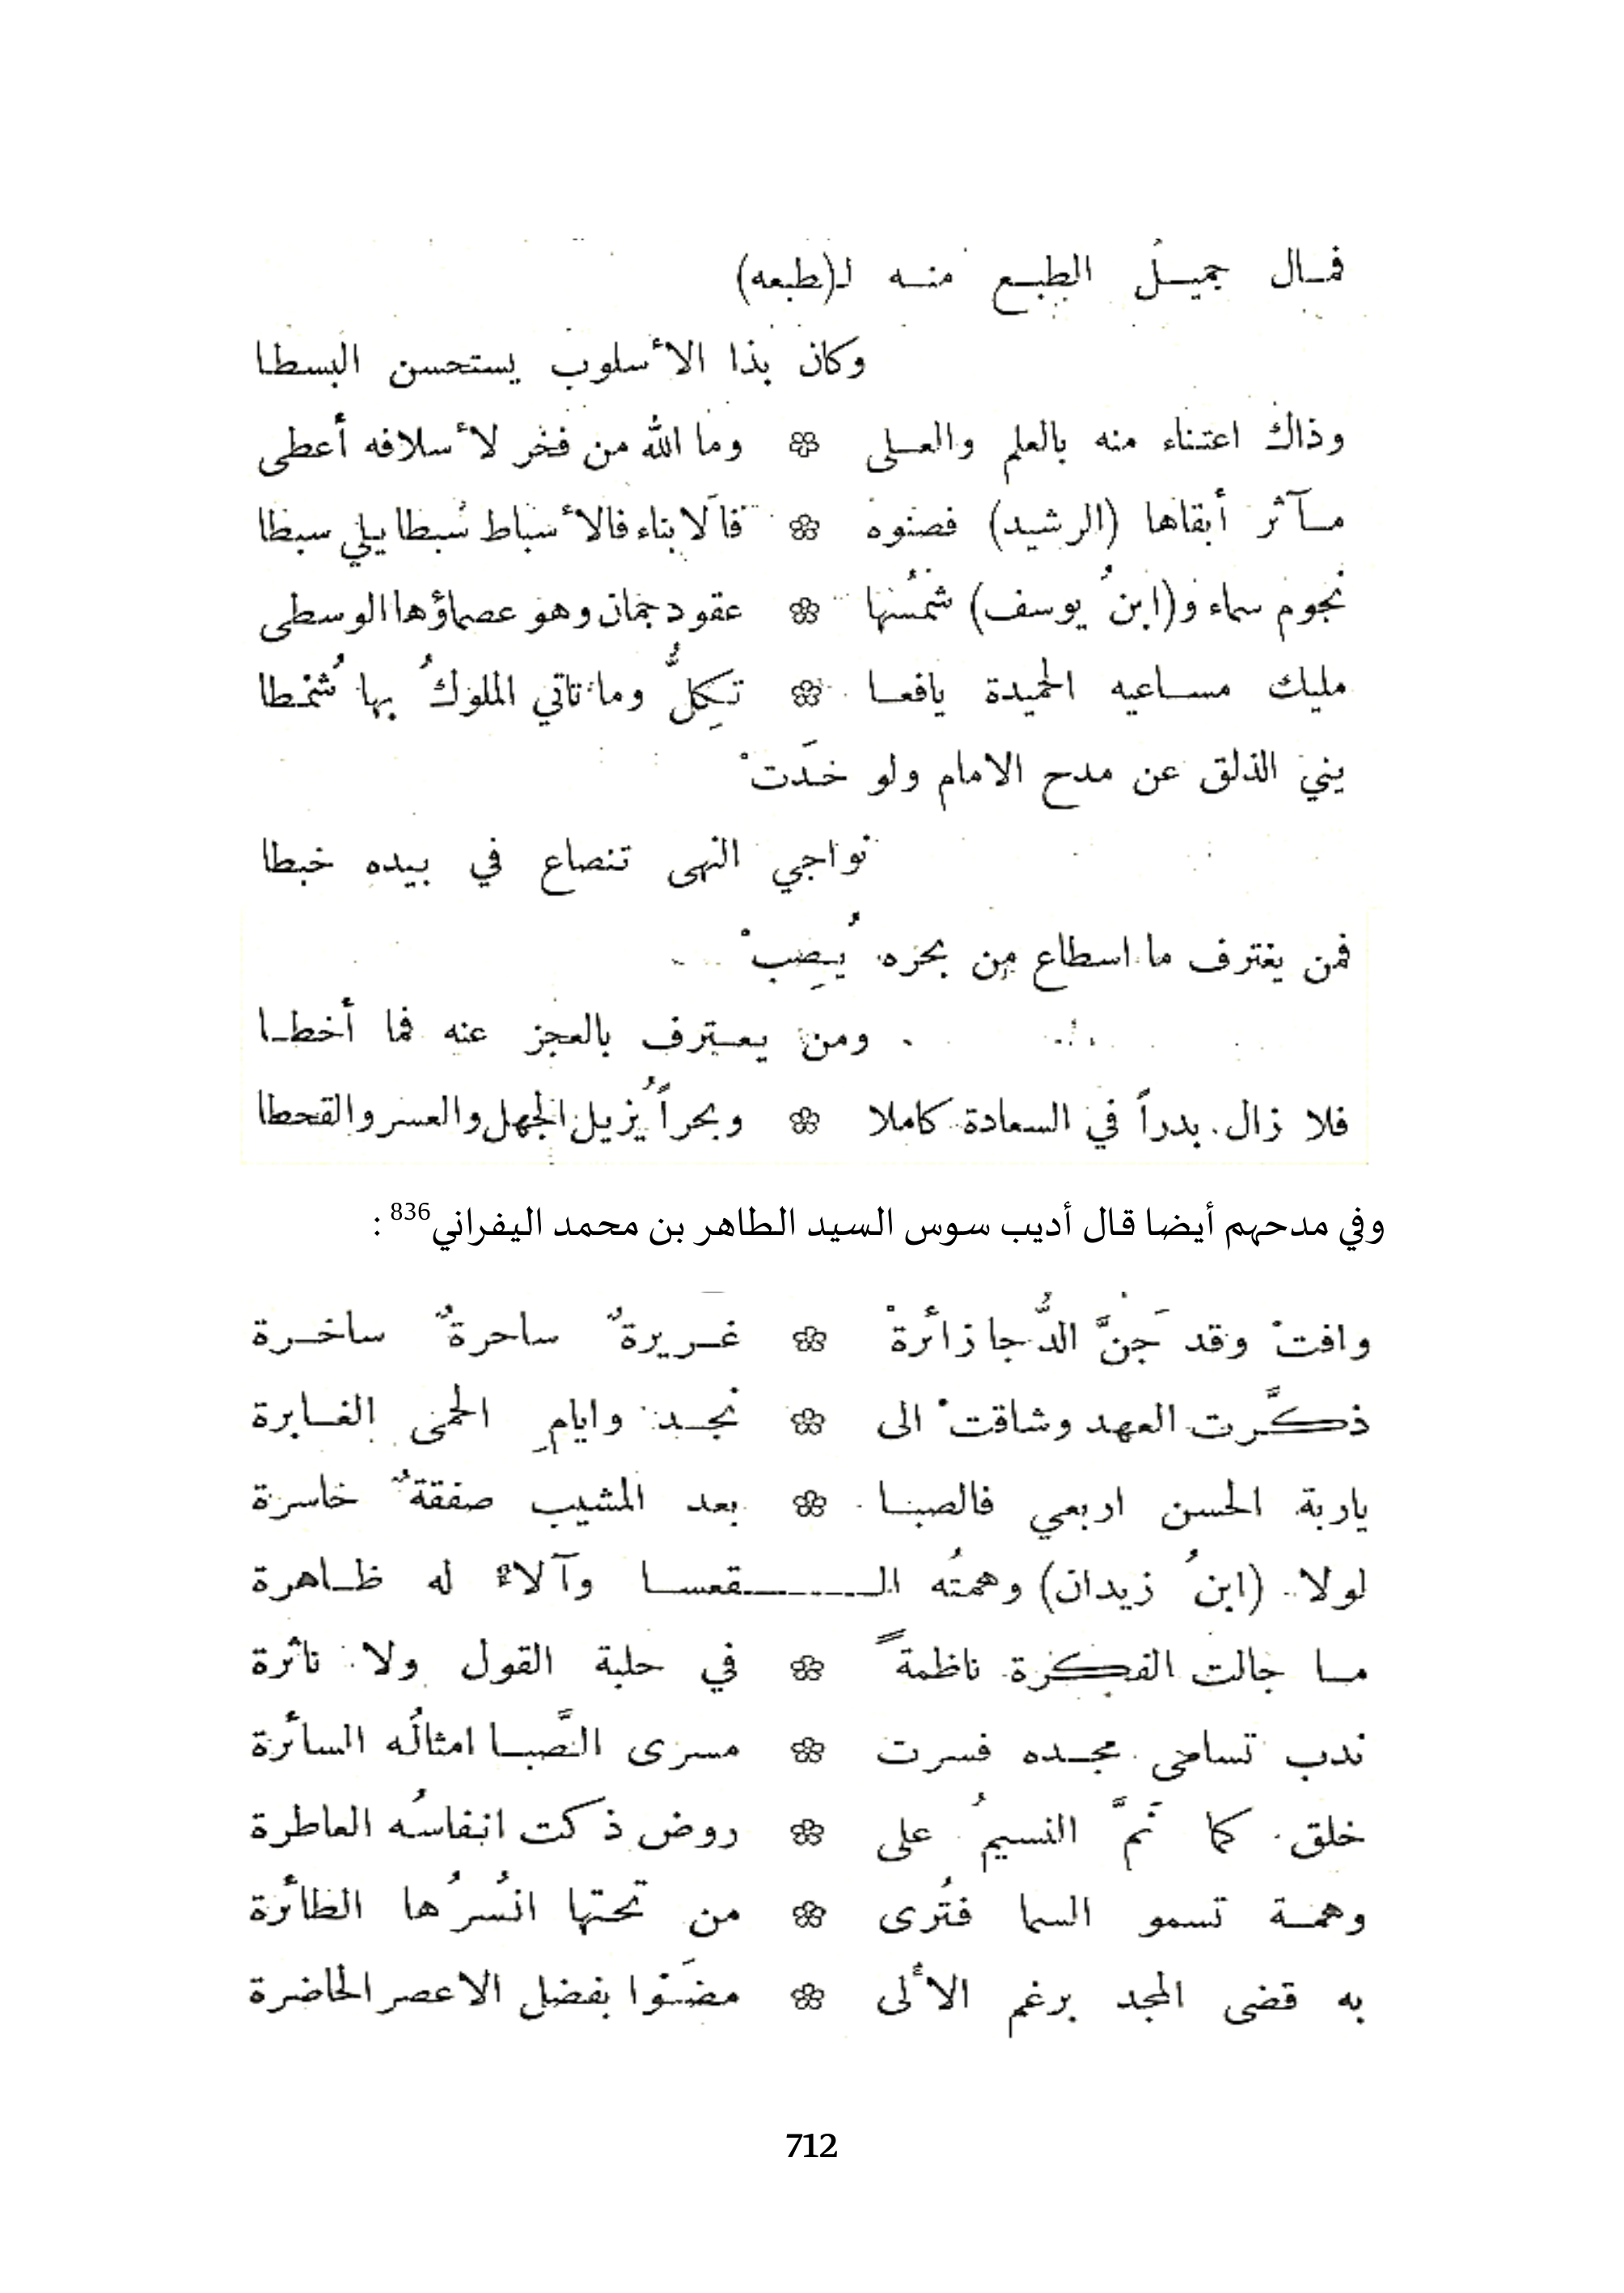 فمال جميلُ الطبع منه لـ(طبعه)
وكان بذا الأسلوب يستحسن البسطا
وذاك اعتناء منه بالعلم والعلى ❀ وما الله من فخر لأسلافه أعطى
مآثر أبقاها (الرشيد) فصنوه ❀ فالابناء فالأسباط سبطا يلي سبطا
نجوم سماء و(ابنُ يوسف) شمسُها ❀ عقود جمان وهو عصماؤها الوسطى
مليك مساعيه الحميدة يافعا ❀ تكِلُّ وما تاتي الملوكُ بها شُمْطا
يني الذلق عن مدح الامام ولو خدَتْ
نواجي النهى تنصاع في بيده خبطا
فمن يغترف ما اسطاع من بحره يُصِبْ
ومن يعترف بالعجز عنه فما أخطا
فلا زال بدراً في السعادة كاملا ❀ وبحراً يُزيل الجهل والعسر والقحطا
وفي مدحهم أيضا قال أديب سوس السيد الطاهر بن محمد اليفراني836 :
وافتْ وقد جَنَّ الدُّجا زائرةْ ❀ غريرةٌ ساحرةٌ ساخرة
ذكَّرت العهد وشاقتْ الى ❀ نجد وايامِ الحمى الغابرة
ياربة الحسن اربعي فالصبا ❀ بعد المشيب صفقةٌ خاسرة
لولا (ابنُ زيدان) وهمتُه الـقعسا وآلاءٌ له ظاهرة
ما جالت الفكرة ناظمةً ❀ في حلبة القول ولا ناثرة
ندب تسامى مجده فسرت ❀ مسرى الصَّبا امثالُه السائرة
خلق كما نَمَّ النسيمُ على ❀ روض ذكت انفاسُه العاطرة
وهمة تسمو السما فتُرى ❀ من تحتها انسُرُها الطائرة
به قضى المجد برغم الألى ❀ مضَوْا بفضل الاعصر الحاضرة
712